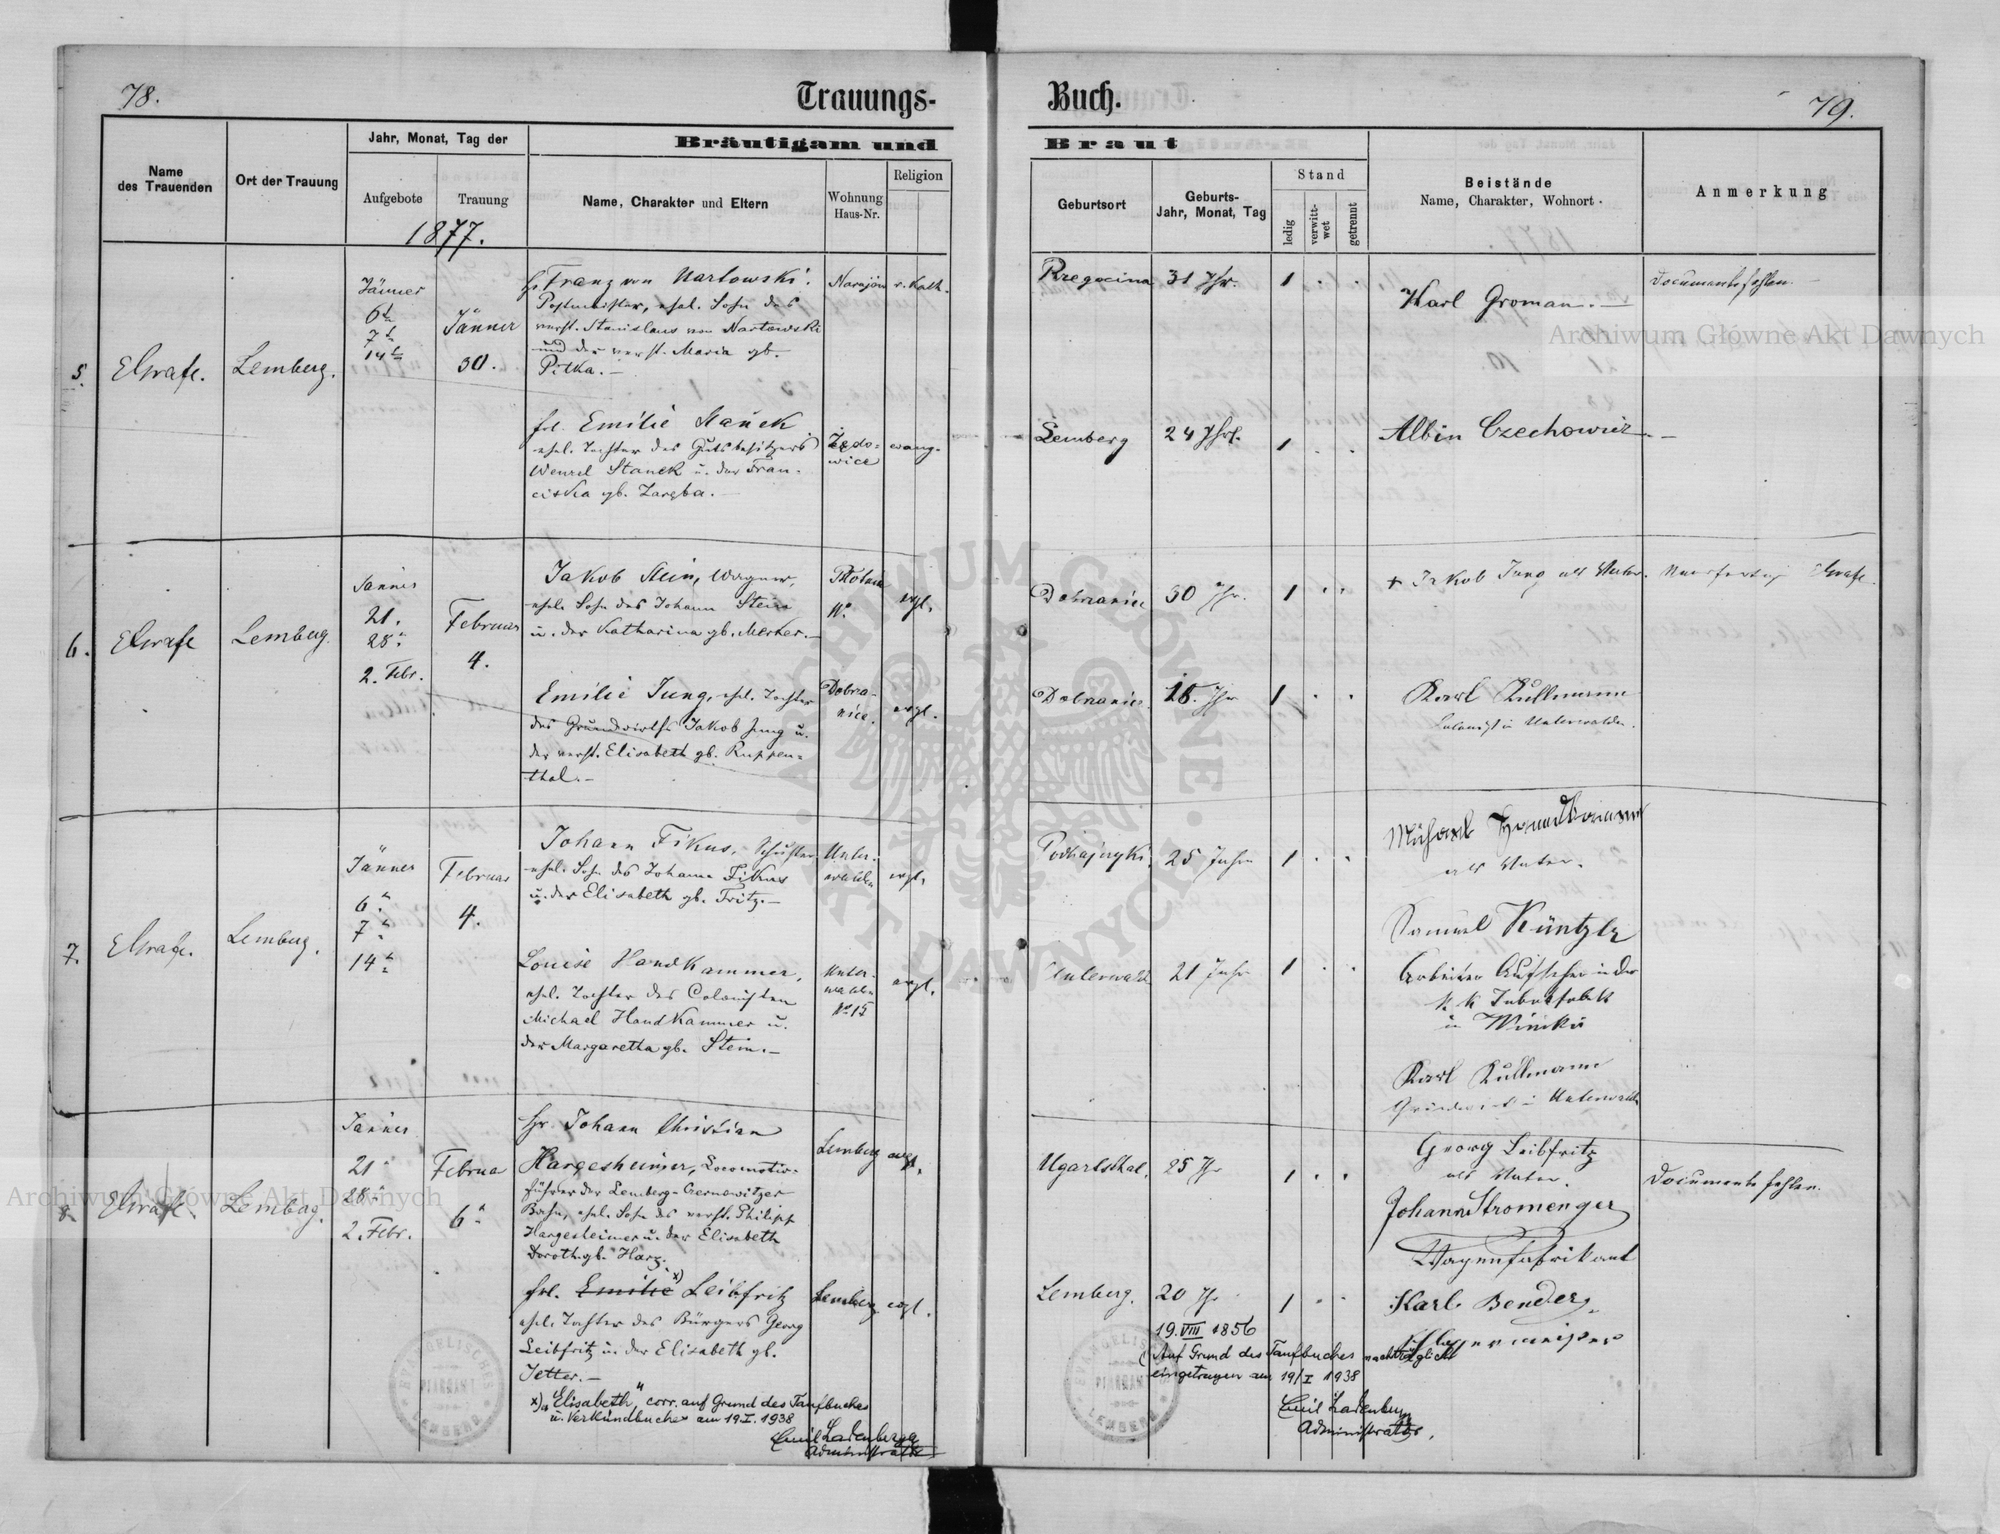 78.
Trauungs-
Name
des Trauenden
Ort der Trauung
Jahr, Monat, Tag der
Aufgebote
Trauung
1877.
Bräutigam und
Name, Charakter und Eltern
Wohnung
Haus-Nr.
Religion
5.
Lemberg.
Jänner
6t
7t
14t
Jänner
30.
Postmeister, ehel. Sohn des
verst. Stanislaus von Nartowski
und der verst. Maria gb.
Pitka.—
r. Kath.
frl. Emilie Stanek
ehel. Tochter des Gutsbesitzers
Wenzel Stanek u. der Fran-
ciska gb. Zaręba.—
evang.
6.
Lemberg.
Jänner
21.
28.
2. Febr.
Februar
4.
Jakob Stein, Wagner,
ehel. Sohn des Johann Stein
u. der Katharina gb. Merker.—
evgl.
Emilie Jung, ehel. Tochter
des Grundwirths Jakob Jung u.
der verst. Elisabeth gb. Ruppen-
thal.—
Dobrza-
nica.
evgl.
7.
Lemberg.
Jänner
6.
7.
14.
Februar
4.
Johann Fikus, Schuster
ehel. Sohn des Johann Fikus
u. der Elisabeth gb. Fritz.—
Unter-
walden
evgl.
Louise Handkammer,
ehel. Tochter des Colonisten
Michael Handkammer u.
der Margaretha gb. Stein.—
Unter-
walden
No 15
evgl.
8.
Lemberg.
Jänner
21
28
2. Febr.
Februar
6.
Hr. Johann Christian
Hargesheimer, Locomotiv-
führer der Lemberg-Czernowitzer
Bahn, ehel. Sohn des verst. Philipp
Hargesheimer u. der Elisabeth
Doroth. gb. Harz.
Lemberg
evgl.
frl. Emilie x) Leibfritz
ehel. Tochter des Bürgers Georg
Leibfritz u. der Elisabeth gb.
Jetter.—
Lemberg
evgl.
x) „Elisabeth" corr. auf Grund des Taufbuches
u. Verkündbuches am 19.I.1938
Emil Ladenberger
Administrator
EVANGELISCHES
PFARRAMT
LEMBERG
Buch.
79.
Braut
Geburtsort
Geburts-
Jahr, Monat, Tag
Stand
ledig
verwitt-
wet
getrennt
Beistände
Name, Charakter, Wohnort.
Anmerkung
31 Jhr.
1
Karl Groman.—
Documente fehlen.—
Lemberg
24 Jhr.
1
Albin Czechowicz.—
30 Jhr.
1
+ Jakob Jung als Vater.
1
Karl Kullmann
Colonist in Unterwalden.
25 Jahre
1
als Vater.
Unterwald
21 Jahr
1
Samuel Küntzler
Arbeiter Aufseher in der
k. k. Tabakfabrik
in Winiki
Karl Kullmann
Ugartsthal.
25 Jhr
1
Georg Leibfritz
als Vater.
Documente fehlen.
Johann Stromenger
Wagenfabrikant
Lemberg.
20 Jhr
1
Karl Bender
19. VIII 1856
(Auf Grund des Taufbuches nachträglich
eingetragen am 19/I 1938
Emil Ladenberger
Administrator.
EVANGELISCHES
PFARRAMT
LEMBERG
ARCHIWUM GŁÓWNE AKT DAWNYCH
Archiwum Główne Akt Dawnych
Archiwum Główne Akt Dawnych